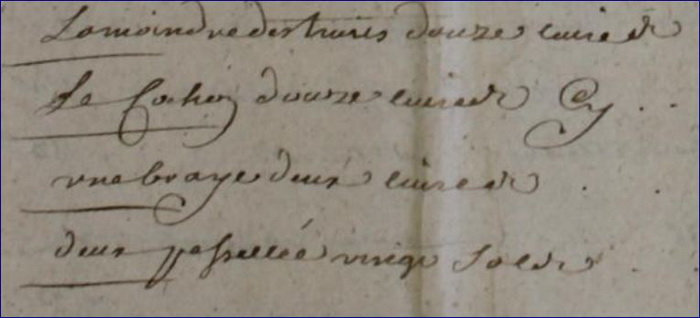 La moindre des truies douze livres
Le Cochon douze livres Cy
une braye deux livres
deux passellée vingt sols